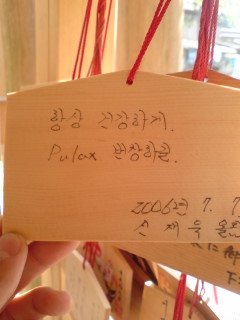 항상 건강하게.
Pulax 번창하길.
2006년 7. 7
신 재 욱